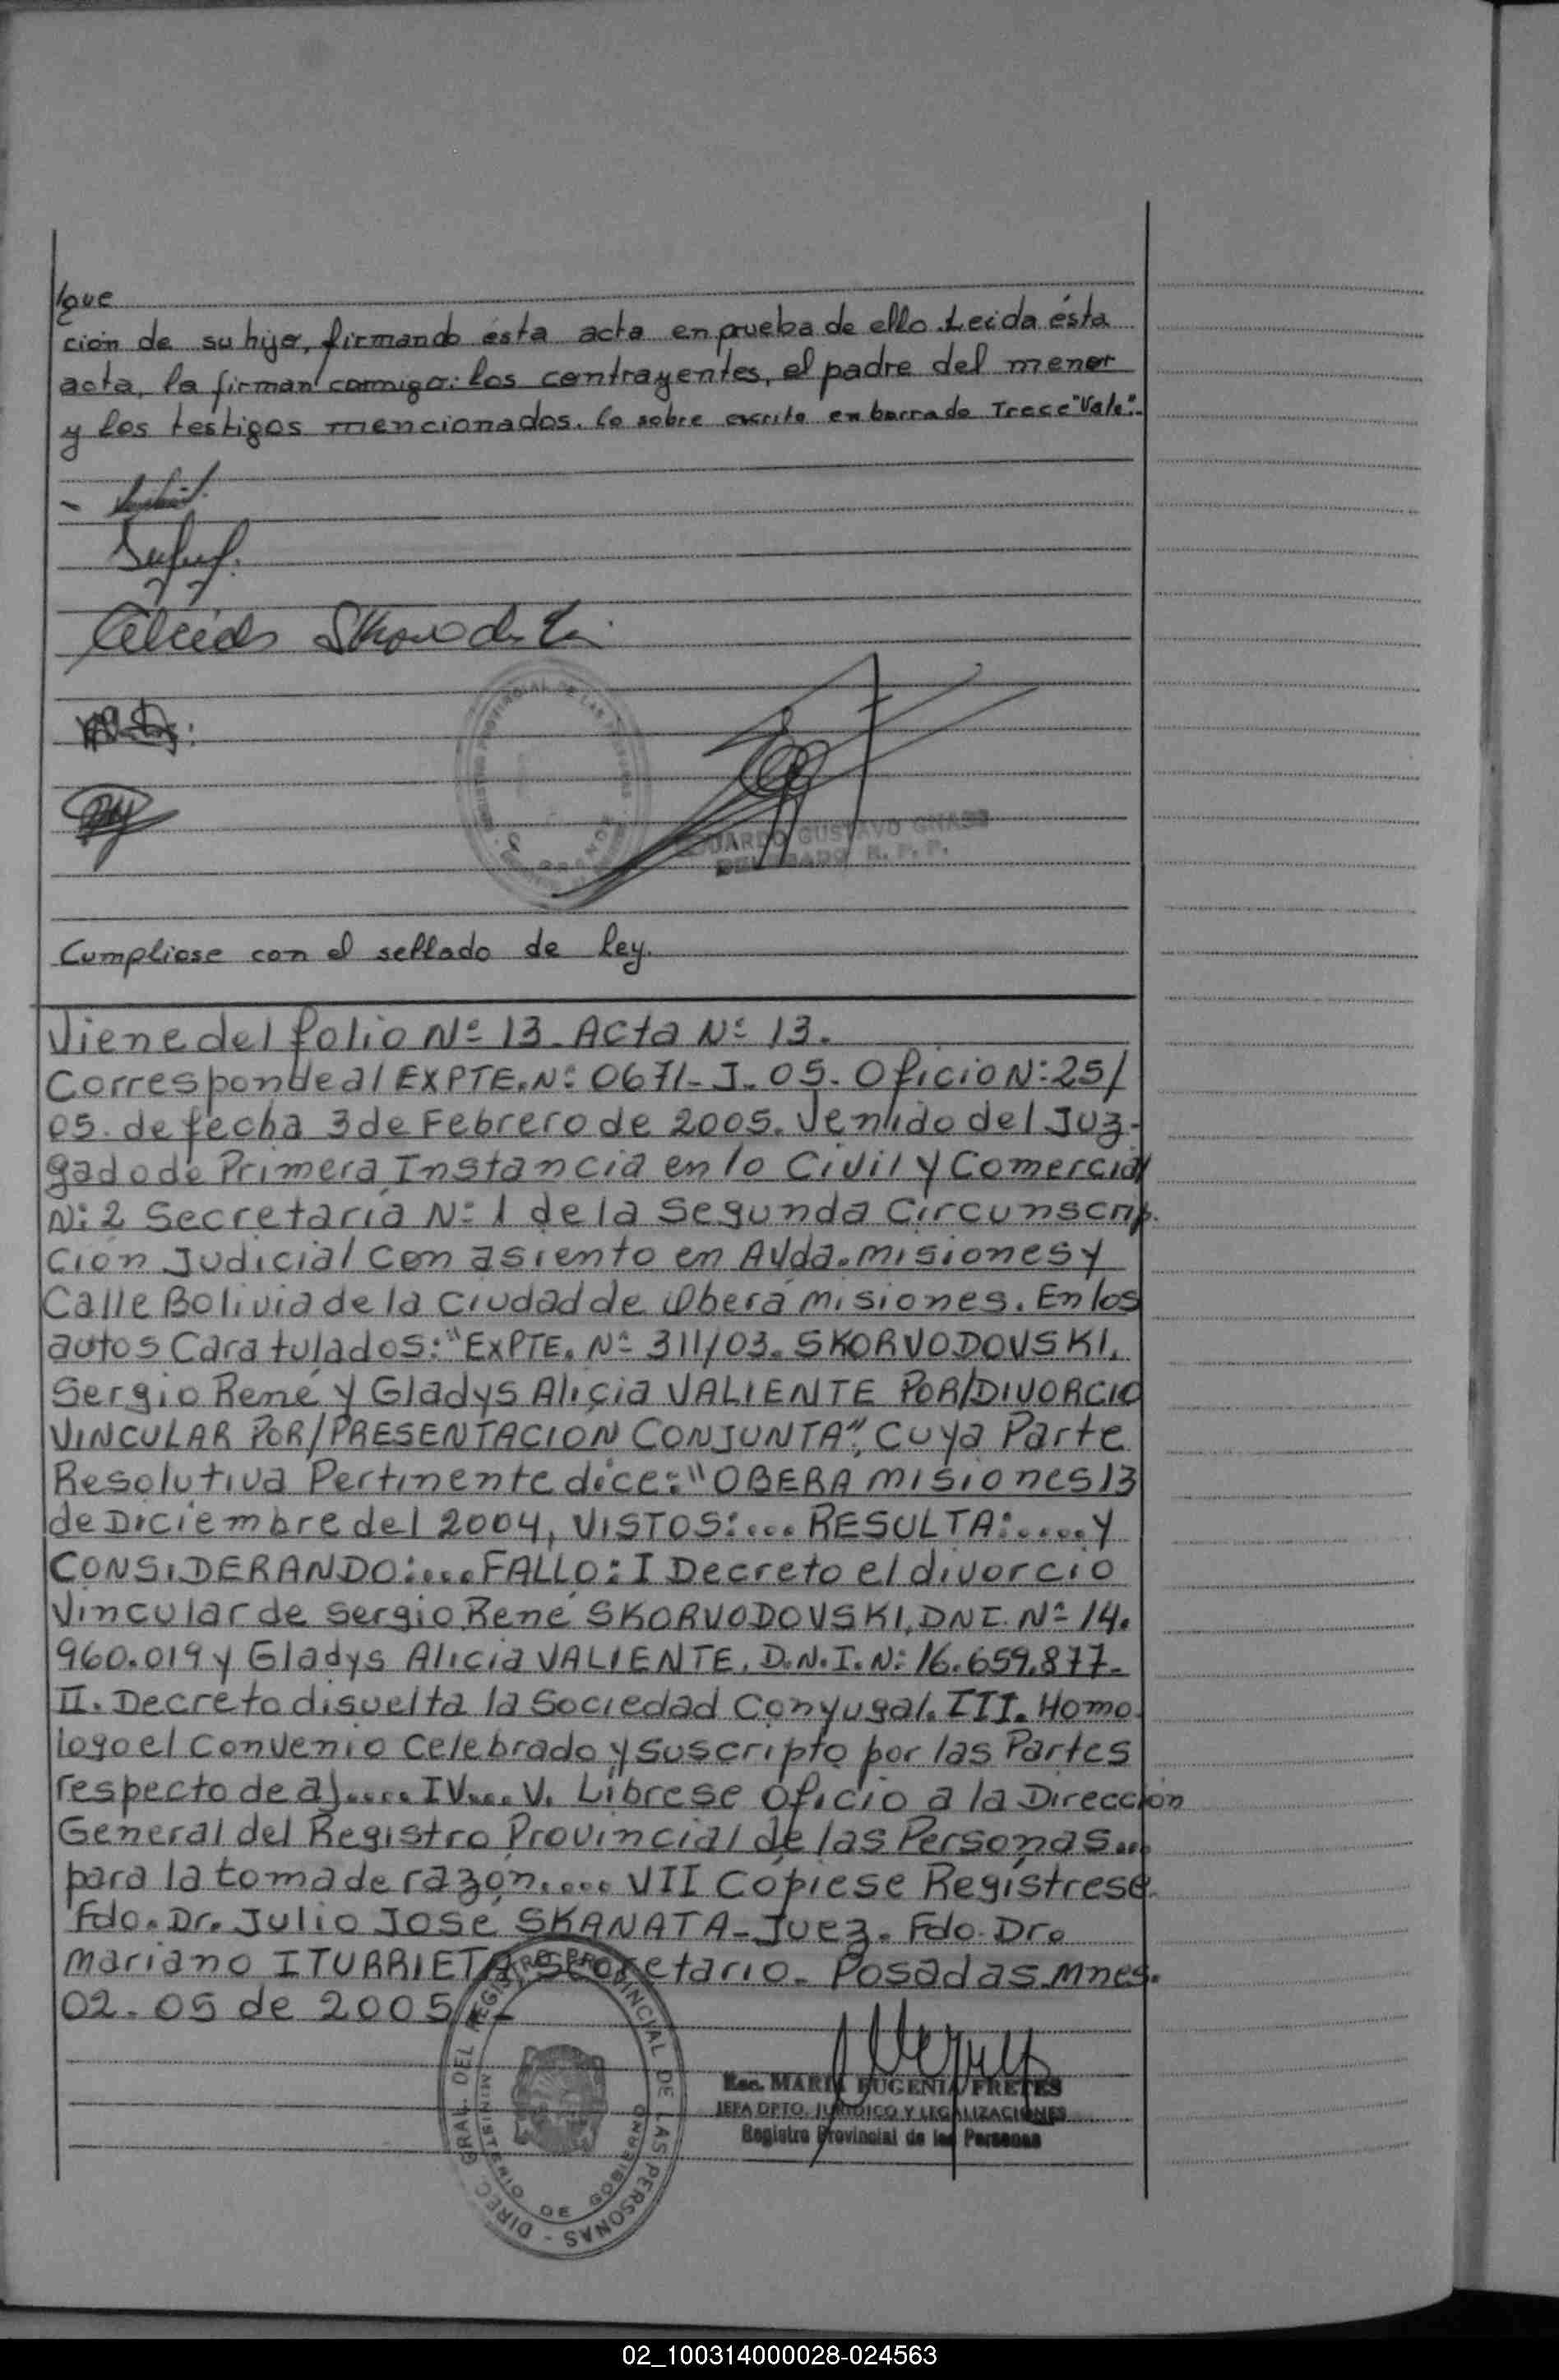 que
ción de su hijo, firmando ésta acta en prueba de ello. Leída ésta
acta, la firman conmigo: los contrayentes, el padre del menor
y los testigos mencionados. Lo sobre escrito en borrado Trece "Vale".-
REGISTRO PROVINCIAL DE LAS PERSONAS
EDUARDO GUSTAVO GNASS
DELEGADO R. P. P.
Cumpliose con el sellado de Ley.
Viene del folio Nº 13 - Acta Nº 13.
Corresponde al EXPTE. Nº 0671- J. 05. Oficio Nº 25/
05. de fecha 3 de Febrero de 2005. Venido del Juz-
gado de Primera Instancia en lo Civil y Comercial
Nº 2 Secretaría Nº 1 de la Segunda Circunscrip-
ción Judicial con asiento en Avda. misiones y
Calle Bolivia de la Ciudad de Oberá misiones. En los
autos Caratulados: "EXPTE. Nº 311/03. SKORVODOVSKI,
Sergio René y Gladys Alicia VALIENTE POR/DIVORCIO
VINCULAR POR/PRESENTACION CONJUNTA", Cuya Parte
Resolutiva Pertinente dice: "OBERA misiones 13
de Diciembre del 2004, VISTOS:... RESULTA:..... y
CONSIDERANDO:.... FALLO: I Decreto el divorcio
Vincular de Sergio René SKORVODOVSKI, DNI. Nº 14.
960.019 y Gladys Alicia VALIENTE. D.N.I. Nº 16.659.877-
II. Decreto disuelta la Sociedad Conyugal. III. Homo-
logo el Convenio Celebrado y suscripto por las Partes
respecto de a)..... IV.... V. Librese oficio a la Dirección
General del Registro Provincial de las Personas...
para la toma de razón..... VII Cópiese Regístrese.
Fdo. Dr. Julio José SKANATA - Juez. Fdo. Dr.
Mariano ITURRIETA Secretario. Posadas Mnes.
02-05 de 2005.-
DIREC. GRAL. DEL REGISTRO PROVINCIAL DE LAS PERSONAS - MINISTERIO DE GOBIERNO
Esc. MARIA EUGENIA FRETES
JEFA DPTO. JURIDICO Y LEGALIZACIONES
Registro Provincial de las Personas
02_100314000028-024563